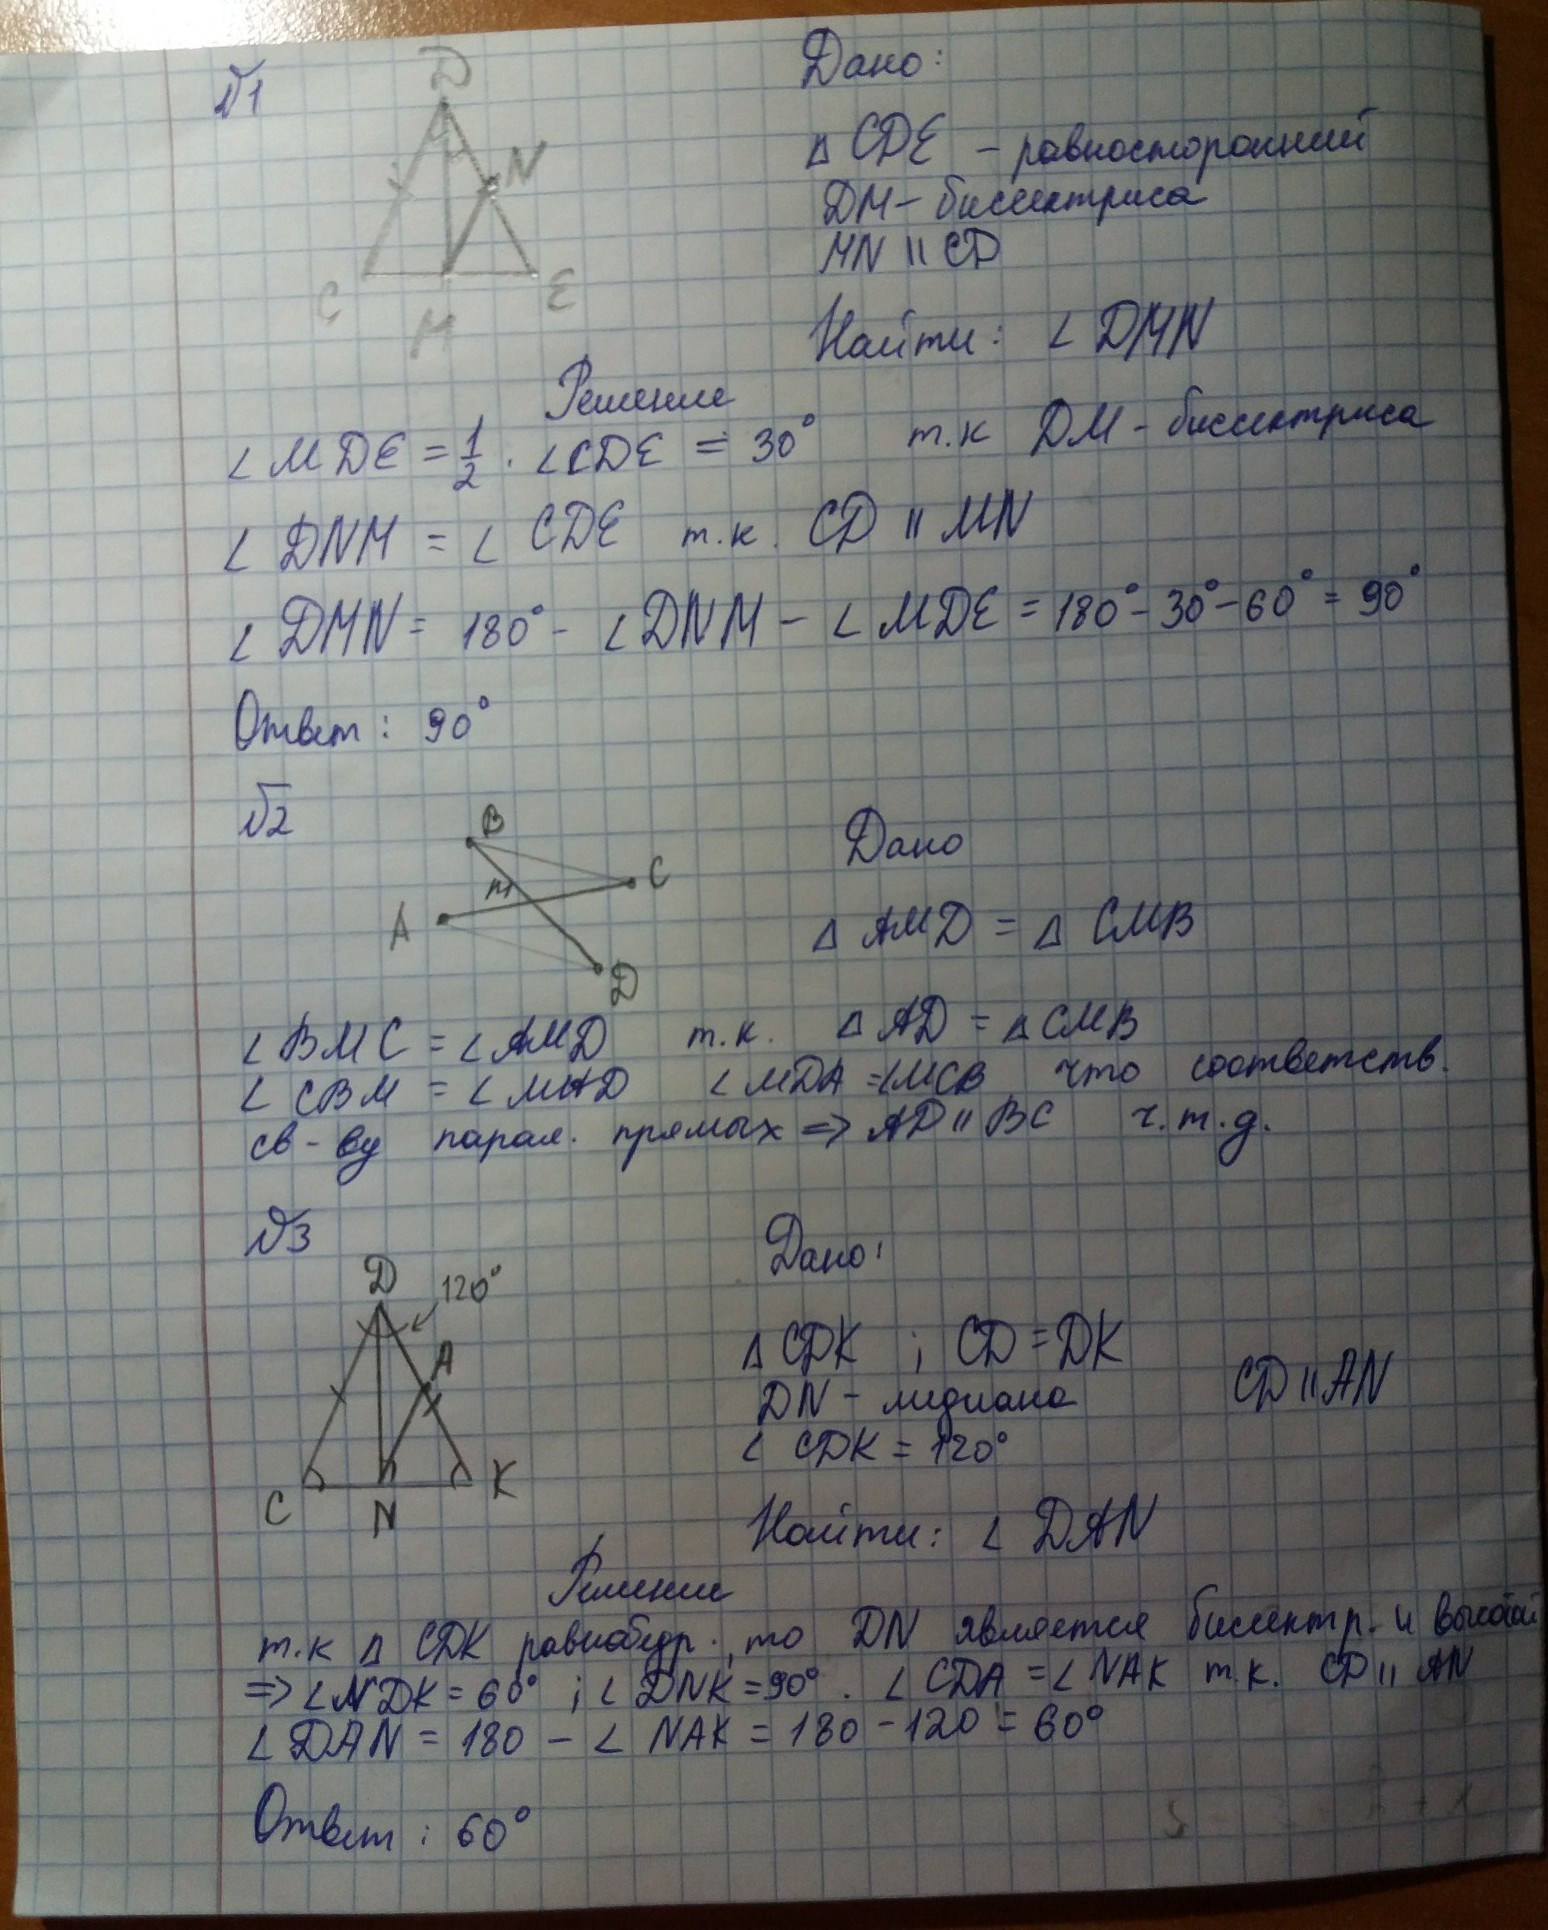 №1
D
N
C
M
E
Дано:
Δ CDE - равносторонний
DM - биссектриса
MN || CD
Найти: ∠ DMN
Решение
∠ MDE = 1/2 · ∠CDE = 30° т.к DM - биссектриса
∠ DNM = ∠ CDE т.к. CD || MN
∠ DMN = 180° - ∠DNM - ∠ MDE = 180° - 30° - 60° = 90°
Ответ: 90°
№2
B
C
M
A
D
Дано
Δ AMD = Δ CMB
∠ BMC = ∠ AMD т.к. Δ AD = Δ CMB
∠ CBM = ∠ MAD ∠ MDA = ∠MCB что соответств.
св-ву парал. прямых => AD || BC ч.т.д.
№3
D
120°
A
C
N
K
Дано:
Δ CDK ; CD = DK
DN - медиана CD || AN
∠ CDK = 120°
Найти: ∠ DAN
Решение
т.к Δ CDK равнобедр., то DN является биссектр. и высотой
=> ∠NDK = 60° ; ∠ DNK = 90°. ∠ CDA = ∠ NAK т.к. CD || AN
∠ DAN = 180 - ∠ NAK = 180 - 120 = 60°
Ответ: 60°